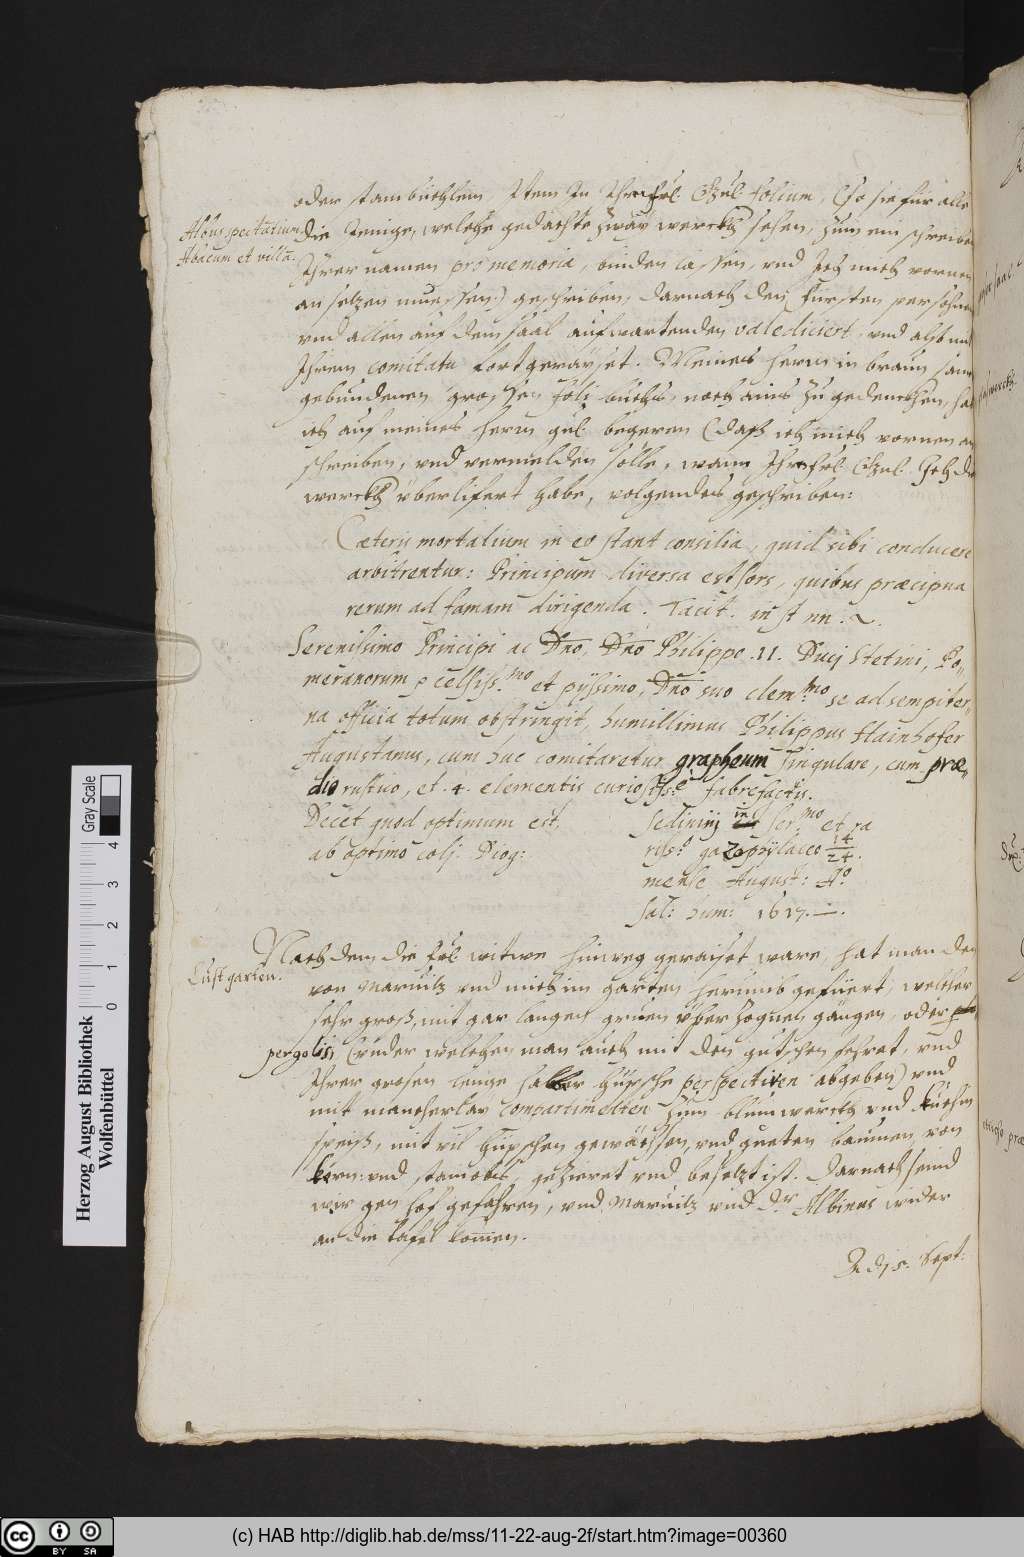 oder stambüechlein, Item In Ihr frl. Gn. folium, (so sie für alle
Albus spectatium
Abacum et villā.
die Jenige, welche gedachte zway werckh sehen, zum einschreiben
Ihrer namen pro memoria, binden lassen, vnd Ich mich vornen
an setzen muessen) geschriben, darnach den fürsten persohnen
vnd allen auf dem saal aufwartenden valediciert, vnd alßo mit
Ihrem comitatu fortgerayset. Meines herrn in braun samet
gebundenen grossen buchs, noch ains zu gedenckhen, hab
ich auf meines herrn gn. begeren (daß ich mich vornen an
schreiben, vnd vermelden solle, wann Ihr frl. Gn. Ich die
werckh überlifert habe, volgendes geschriben:
Cæteris mortalium in eo stant consilia, quid sibi conducere
arbitrentur: Principum diversa est sors, quibus præcipua
rerum ad famam dirigenda. Tacit.
Serenissimo Principi ac Dno, Dno Philippo .II. Ducj Stetini, Po-
meranorum celsiss.mo et pyssimo, Dno suo clem.mo se ad sempiter-
na officia totum obstringit, humillimus Philippus Hainhofer
Augustanus, cum huc comitaretur grapheum singulare, cum præ-
dio rustico, et .4. elementis curiosiss.e fabrefactis.
Decet quod optimum est,
ab optimo colj. Diog:
Sedinij in ser.mo et ra
riss.o gazophylaceo 14/24.
mense August: Ao.
sal: hum: 1617.
Lustgarten.
Nach dem die frl. witwe hinweg geraiset ware, hat man den
von Marwitz vnd mich im garten herumb gefüert, welcher
sehr groß, mit gar langen grien überzognen gängen, oder
pergolis, (vnder welchen man auch mit den gutschen fehret, vnd
Ihrer grosen lenge halber hüpsche perspectiven abgeben) vnd
mit mancherlay compartimenten zum blumwerckh vnd kuchin
speiß, mit vil hüpschen gewächssen, vnd gueten baumen, von
kern: vnd stainobs, geziert vnd besetzt ist. Darnach seind
wir gen hof gefahren, vnd Marwitz vnd Dr. Albinus wider
an die tafel komen.
Adj 5. Sept:
Herzog August Bibliothek
Wolfenbüttel
0 1 2 3 4
Gray Scale
cc BY SA
(c) HAB http://diglib.hab.de/mss/11-22-aug-2f/start.htm?image=00360